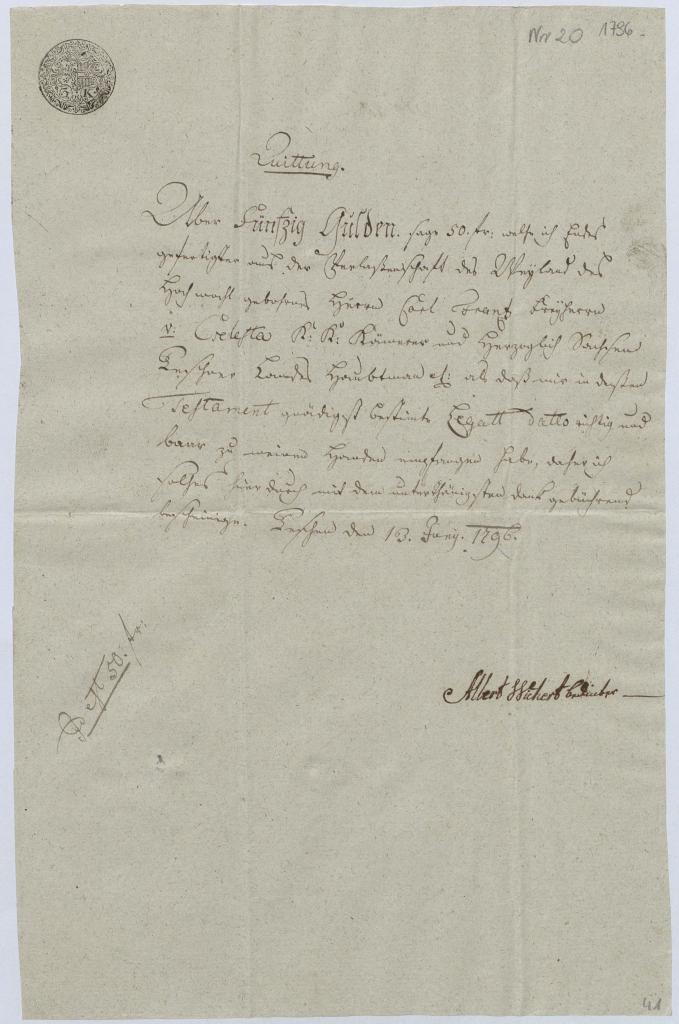 Nrv 20 1796.
3 K
Quittung.
Über Fünfzig Gulden. sage 50. fr: welche ich Endes
gefertigter aus der Verlassenschaft des Weyland des
Hoch wohl gebohrnes Herrn Carl Frantz Freyherrn
v: Celesta K: K: Kämerer und Herzoglich Sachsen
Teschner Landes Haubtman als daß mir in dessen
Testament gnädigst bestimte Legatt datto richtig und
baar zu meinen Handen empfangen habe, daher ich
solches hierdurch mit dem unterthänigsten dank gebührend
bescheinige. Teschen den 13. Juny. 1796.
50. fr:
Albert Wichert bedinter
41